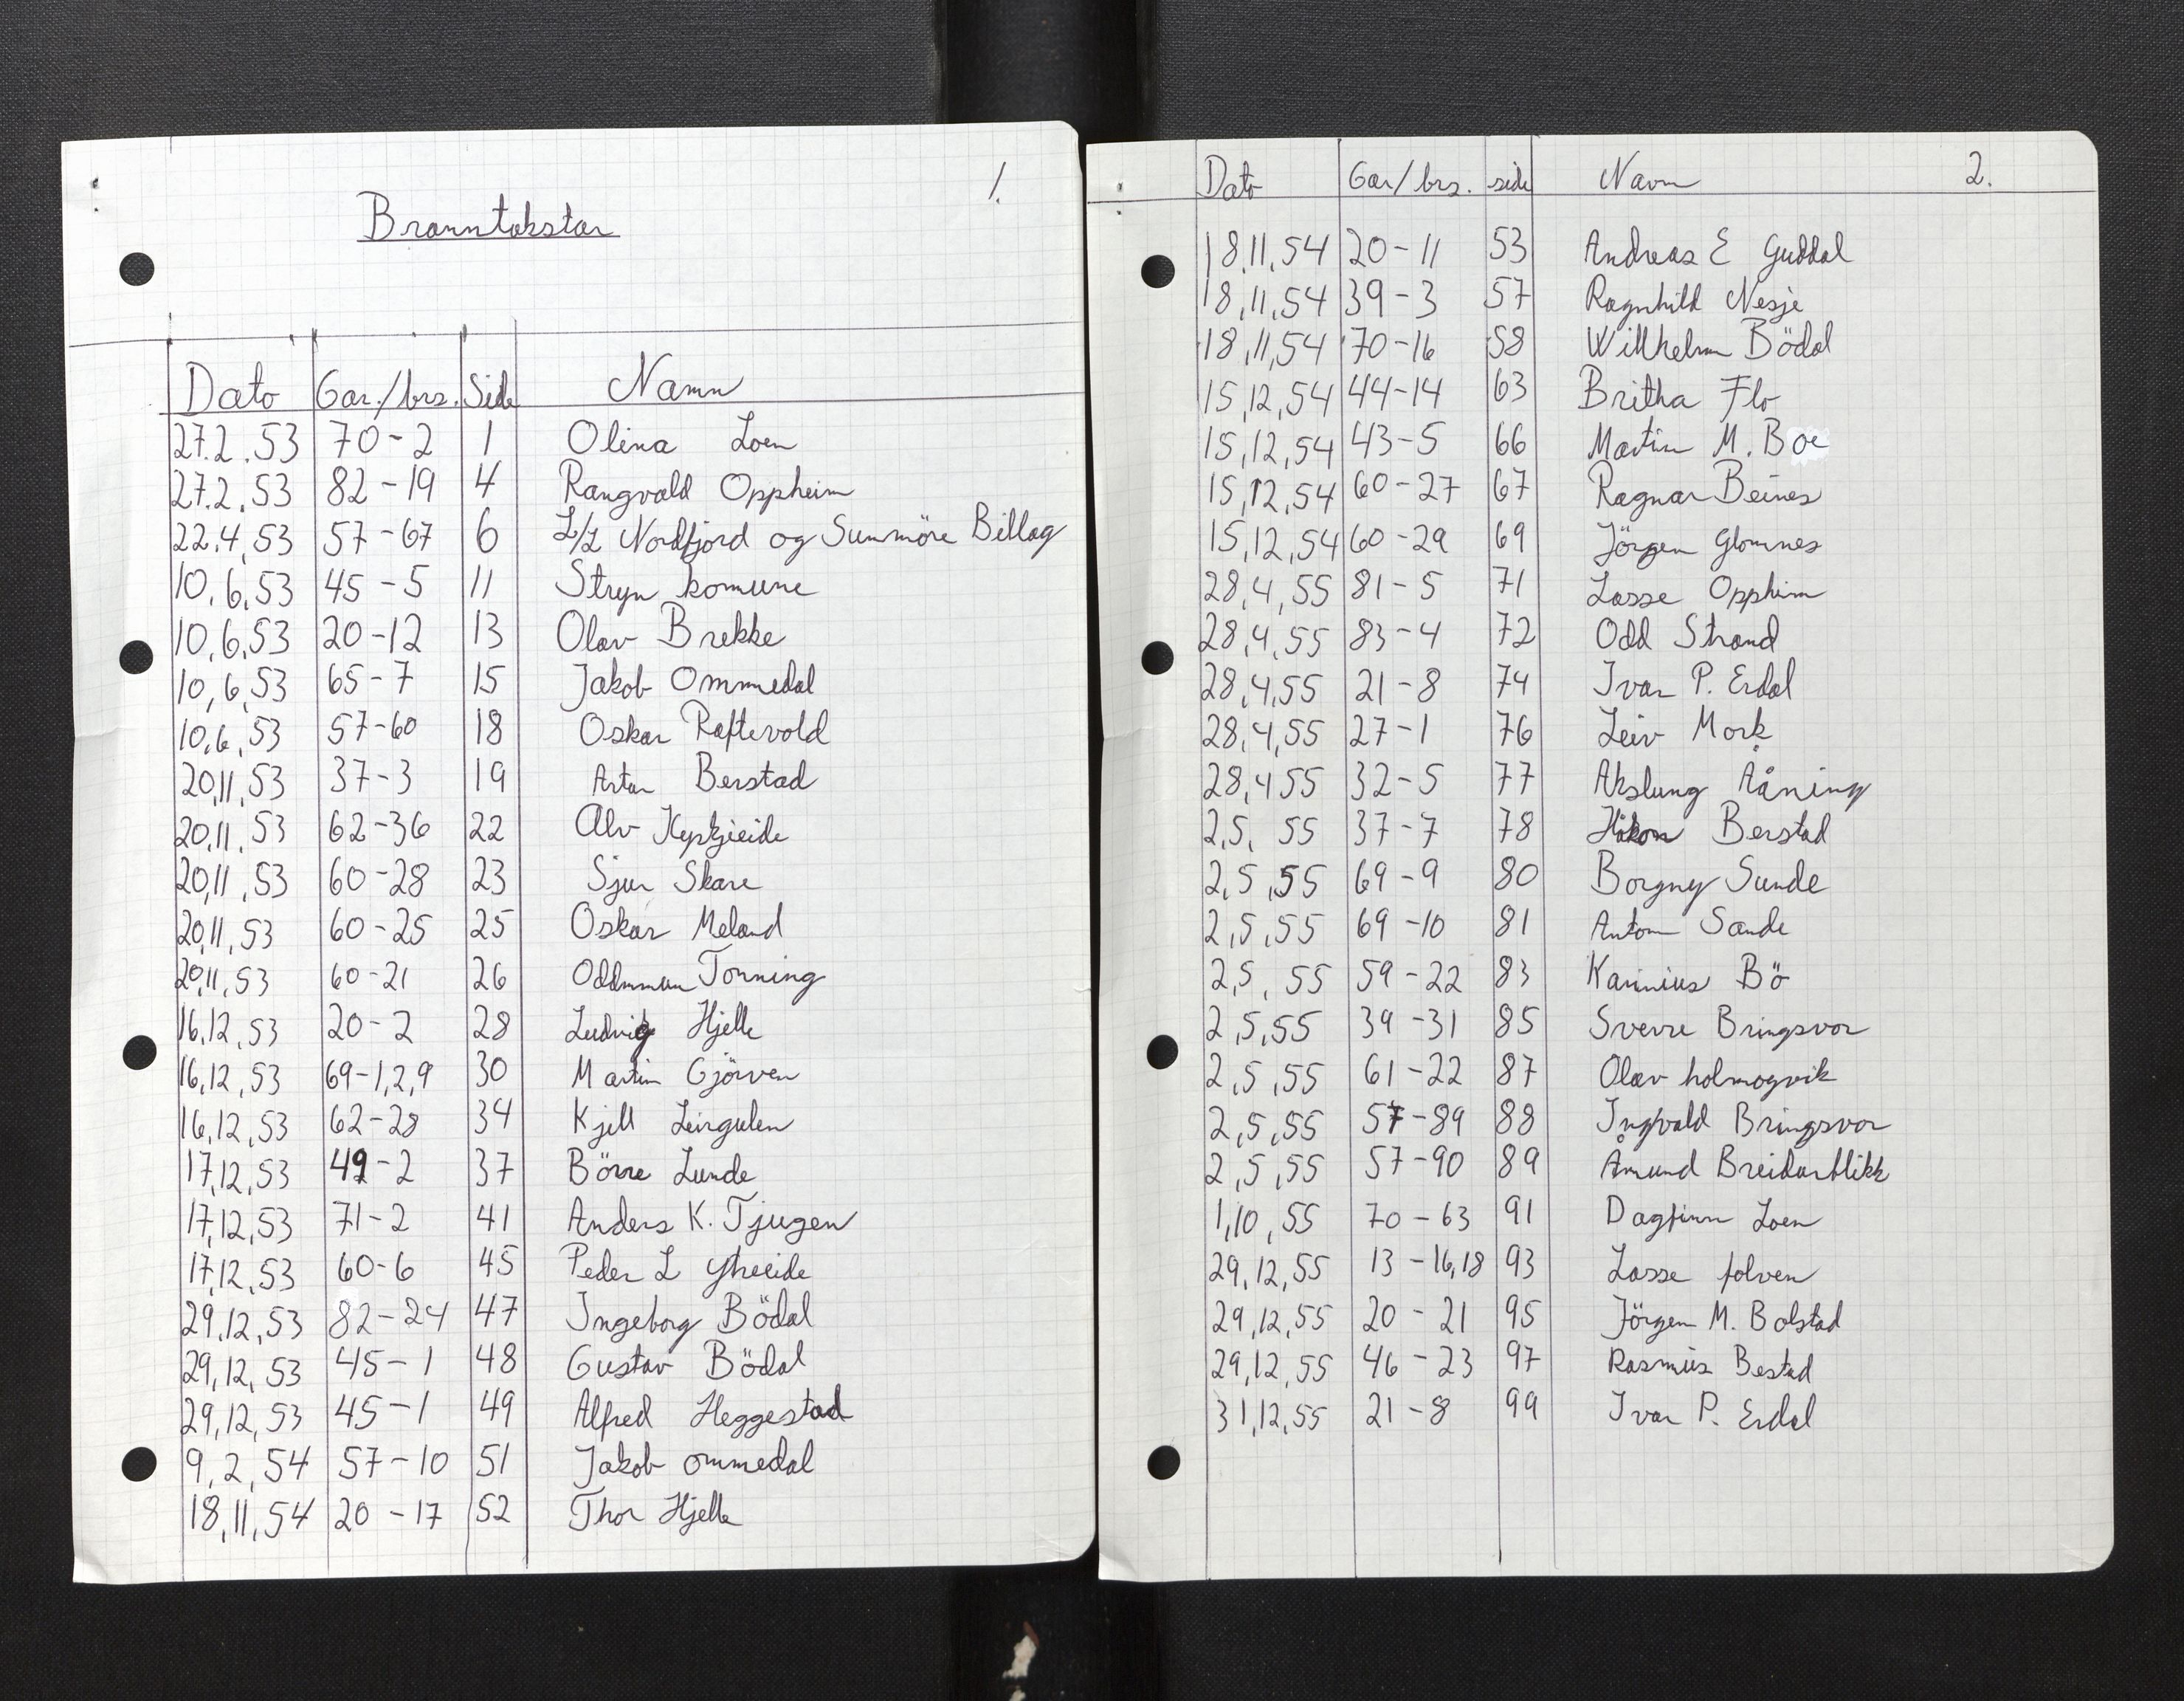 1.
Branntakstar
Dato Gar./brs. Side Namn
27.2.53 70-2 1 Olina Loen
27.2.53 82-19 4 Rangvald Oppheim
22.4.53 57-67 6 L/L Nordfjord og Sunnmöre Billag
10,6,53 45-5 11 Stryn komune
10,6,53 20-12 13 Olav Brekke
10,6,53 65-7 15 Jakob Ommedal
10,6,53 57-60 18 Oskar Raftevold
20,11,53 37-3 19 Artur Berstad
20,11,53 62-36 22 Alv
20,11,53 60-28 23 Sjur Skare
20,11,53 60-25 25 Oskar Meland
20,11,53 60-21 26 Oddmun Tonning
16,12,53 20-2 28 Ludvig Hjelle
16,12,53 69-1,2,9 30 Martin Gjörven
16,12,53 62-28 34 Kjell Leirgulen
17,12,53 49-2 37 Börre Lunde
17,12,53 71-2 41 Anders K. Tjugen
17,12,53 60-6 45 Peder L Ytreeide
29,12,53 82-24 47 Ingeborg Bödal
29,12,53 45-1 48 Gustav Bödal
29,12,53 45-1 49 Alfred Heggestad
9,2,54 57-10 51 Jakob ommedal
18,11,54 20-17 52 Thor Hjelle
Dato Gar/brs. side Navn 2.
18,11,54 20-11 53 Andreas E Guddal
18,11,54 39-3 57 Ragnhild Nesje
18,11,54 70-16 58 Willhelm Bödal
15,12,54 44-14 63 Britha Flo
15,12,54 43-5 66 Martin M. Boe
15,12,54 60-27 67 Ragnar Beines
15,12,54 60-29 69 Jörgen Glomnes
28,4,55 81-5 71 Lasse Oppheim
28,4,55 83-4 72 Odd Strand
28,4,55 21-8 74 Ivar P. Erdal
28,4,55 27-1 76 Leiv Mork
28,4,55 32-5 77 Akslung Aåning
2,5,55 37-7 78 Håkon Berstad
2,5,55 69-9 80 Borgny Sunde
2,5,55 69-10 81 Anton Sande
2,5,55 59-22 83 Karinius Bö
2,5,55 39-31 85 Sverre Bringsvor
2,5,55 61-22 87 Olav holmogvik
2,5,55 57-89 88 Ingvald Bringsvor
2,5,55 57-90 89 Åmund Breidarblikk
1,10,55 70-63 91 Dagfinn Loen
29,12,55 13-16,18 93 Lasse folven
29,12,55 20-21 95 Jörgen M. Bolstad
29,12,55 46-23 97 Rasmus Bestad
31,12,55 21-8 99 Ivar P. Erdal